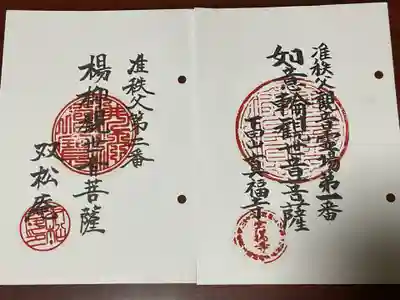 准秩父観音霊場第一番
如意輪観世音菩薩
富山真福寺
准秩父第二番
楊柳観世音菩薩
双松庵